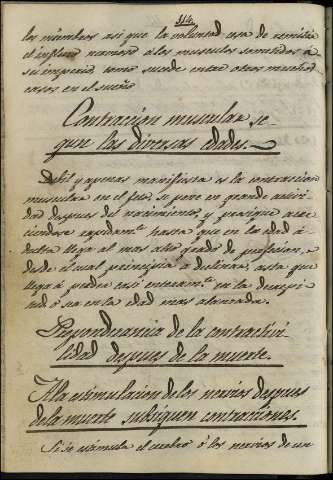 114.
los miembros asi que la voluntad cesa de remitir
el influxo nervioso a los musculos sometidos á
su imperio, como sucede entre otros muchos
casos en el sueño
Contraccion muscular se-
gun las diversas edades.
Debil y apenas manifiesta es la contraccion
muscular en el feto, se pone en grande activi
dad despues del nacimiento, y prosigue acre
hasta que en la edad á-
dulta llega al mas alto grado de perfeccion, y
desde el cual principia a declinar, asta que
llega á perderse casi enteramte. en la decrepi
tud o sea en la edad mas abanzada.
de la contractivi
lidad despues de la muerte.
A la estimulacion de los nervios despues
de la muerte subsiguen contracciones.
Si se estimula el cerebro ó los nervios de un